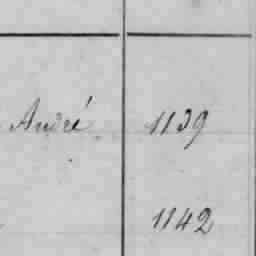 André 1139
1142